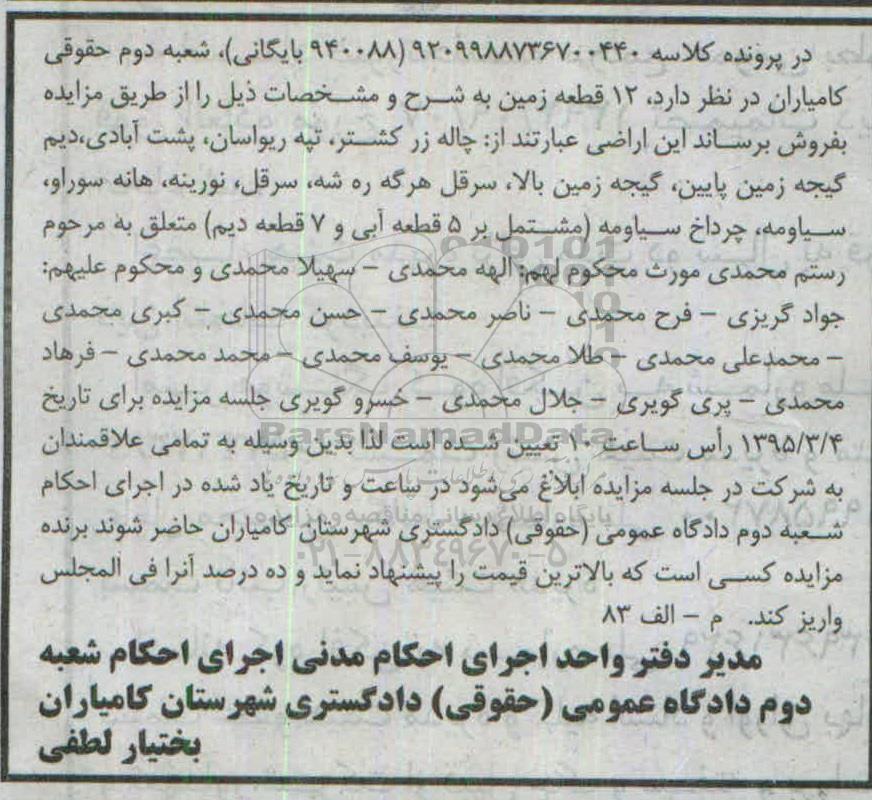 در پرونده کلاسه ۹۲۰۹۹۸۸۷۳۶۷۰۰۴۴۰ (۹۴۰۰۸۸ بایگانی)، شعبه دوم حقوقی
کامیاران در نظر دارد، ۱۲ قطعه زمین به شرح و مشخصات ذیل را از طریق مزایده
بفروش برساند این اراضی عبارتند از: چاله زر کشتر، تپه ریواسان، پشت آبادی،دیم
گیجه زمین پایین، گیجه زمین بالا، سرقل هرگه ره شه، سرقل، نورینه، هانه سوراو،
سیاومه، چرداخ سیاومه (مشتمل بر ۵ قطعه آبی و ۷ قطعه دیم) متعلق به مرحوم
رستم محمدی مورث محکوم لهم: الهه محمدی – سهیلا محمدی و محکوم علیهم:
جواد گریزی – فرح محمدی – ناصر محمدی – حسن محمدی – کبری محمدی
– محمدعلی محمدی – طلا محمدی – یوسف محمدی – محمد محمدی – فرهاد
محمدی – پری گویری – جلال محمدی – خسرو گویری جلسه مزایده برای تاریخ
۱۳۹۵/۳/۴ رأس ساعت ۱۰ تعیین شده است لذا بدین وسیله به تمامی علاقمندان
به شرکت در جلسه مزایده ابلاغ می‌شود در ساعت و تاریخ یاد شده در اجرای احکام
شعبه دوم دادگاه عمومی (حقوقی) دادگستری شهرستان کامیاران حاضر شوند برنده
مزایده کسی است که بالاترین قیمت را پیشنهاد نماید و ده درصد آنرا فی المجلس
واریز کند. م – الف ۸۳
مدیر دفتر واحد اجرای احکام مدنی اجرای احکام شعبه
دوم دادگاه عمومی (حقوقی) دادگستری شهرستان کامیاران
بختیار لطفی
ParsNamadData
پایگاه اطلاع رسانی مناقصه و مزایده
۰۲۱-۸۸۳۴۹۶۷۰-۵